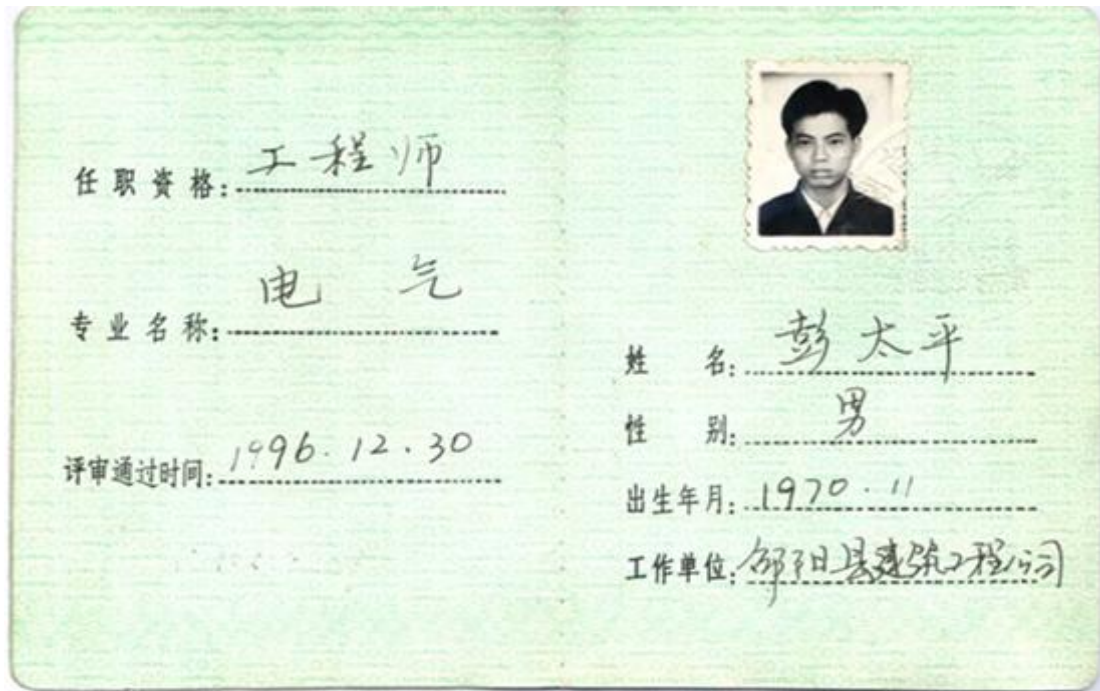 任职资格:工程师
专业名称:电 气
评审通过时间:1996.12.30
姓 名:彭太平
性 别:男
出生年月:1970.11
工作单位:邵阳县建筑工程公司